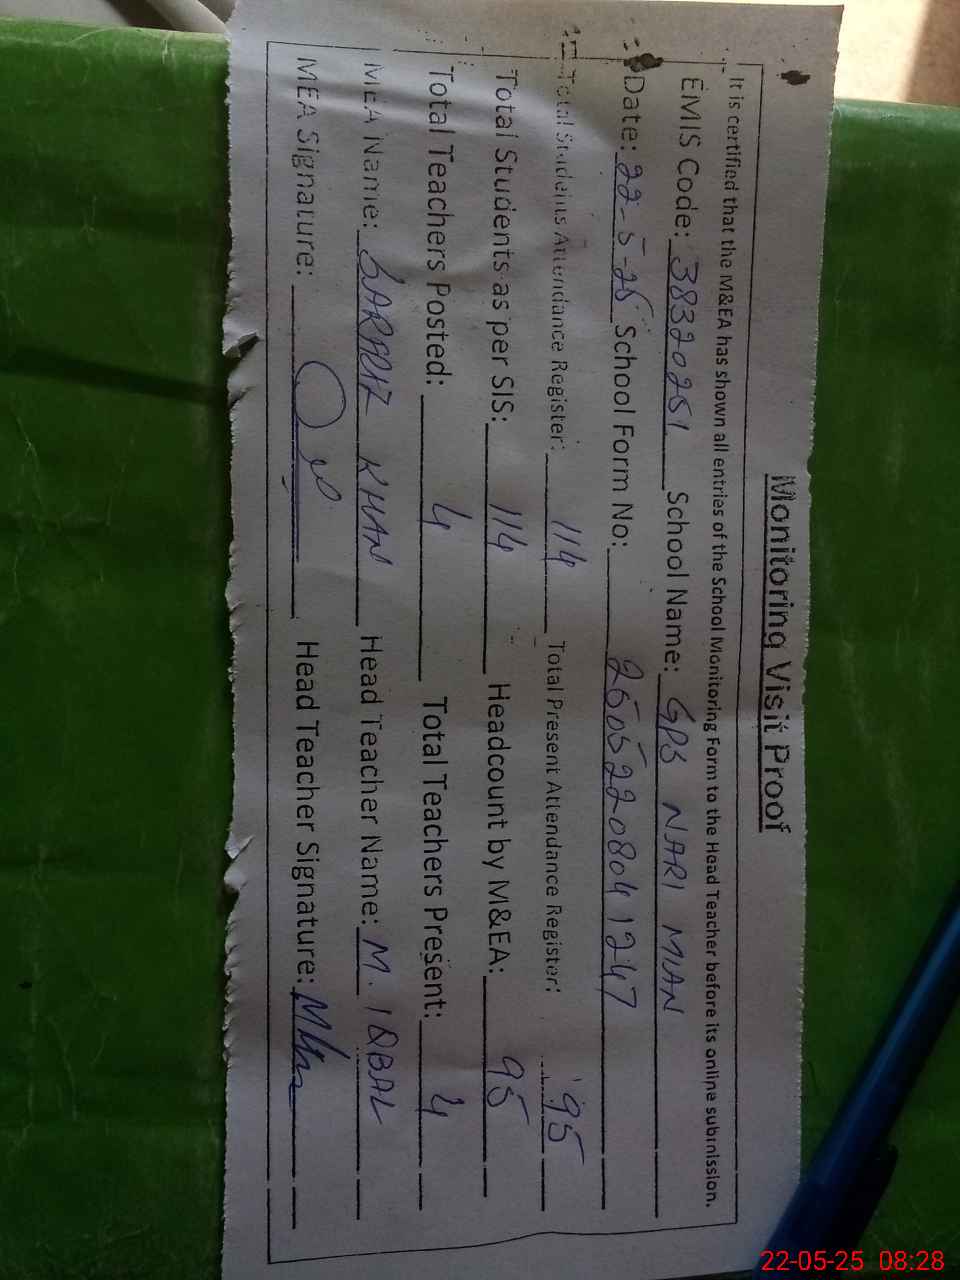 Monitoring Visit Proof
It is certified that the M&EA has shown all entries of the School Monitoring Form to the Head Teacher before its online submission.
EMIS Code: 38320251 School Name: GPS NARI MIAN
Date: 22-5-25 School Form No: 25052208041247
Total Students Attendance Register: 114 Total Present Attendance Register: 95
Total Students as per SIS: 114 Headcount by M&EA: 95
Total Teachers Posted: 4 Total Teachers Present: 4
MEA Name: KHAN Head Teacher Name: M. IQBAL
MEA Signature: Head Teacher Signature:
22-05-25 08:28